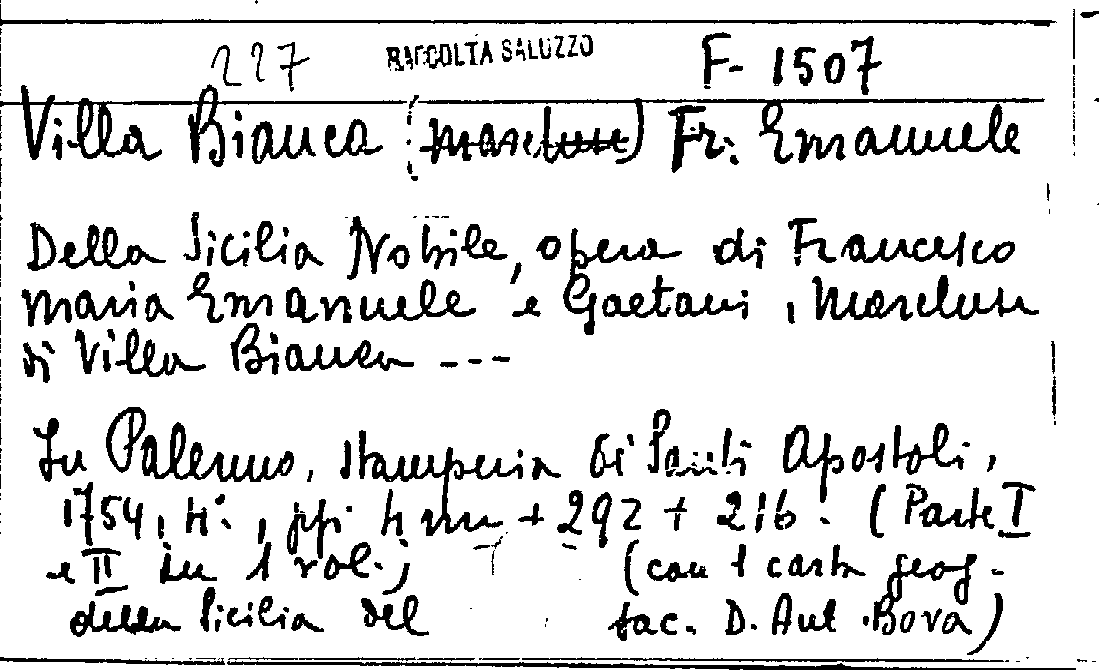 227 RACCOLTA SALUZZO F- 1507
Villa Bianca (Marchese) Fr. Emanuele
Della Sicilia Nobile, opera di Francesco
Maria Emanuele e Gaetani, Marchese
di Villa Bianca ---
In Palermo, stamperia di Santi Apostoli,
1754, 4°., pp. 4 nn + 292 + 216. (Parte I
e II in 1 vol.; (con 1 carta geog-
della Sicilia del fac. D. Ant. Bova)